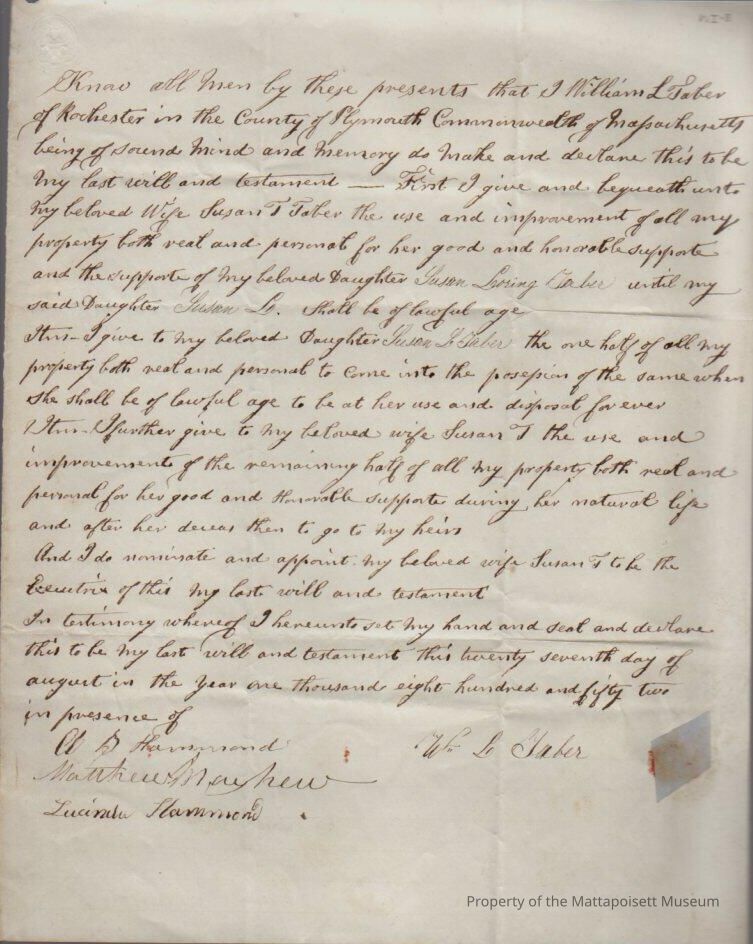 Know all Men by these presents that I William L Taber
of Rochester in the County of Plymouth Commonwealth of Massachusetts
being of sound Mind and Memory do Make and declare this to be
My last will and testament — First I give and bequeath unto
My beloved Wife Susan T Taber the use and improvement of all my
property both real and personal for her good and honorable supporte
and the supporte of My beloved Daughter Susan Loring Taber until my
said Daughter Susan L. shall be of lawful age
Itm - I give to my beloved Daughter Susan L Taber the one half of all my
property both real and personal to come into the possession of the same when
she shall be of lawful age to be at her use and disposal for ever
Itm - I further give to My beloved wife Susan T the use and
improvement of the remaining half of all my property both real and
personal for her good and Honorable supporte during her natural life
and after her deceas then to go to My heirs
And I do nominate and appoint my beloved wife Susan T to be the
Executrix of this My last will and testament
In testimony whereof I hereunto set My hand and seal and declare
this to be My last will and testament this twenty seventh day of
august in the year one thousand eight hundred and fifty two
in presence of
B Hammond Wm L Taber
Matthew Mayhew
Lucinda Hammond
Property of the Mattapoisett Museum